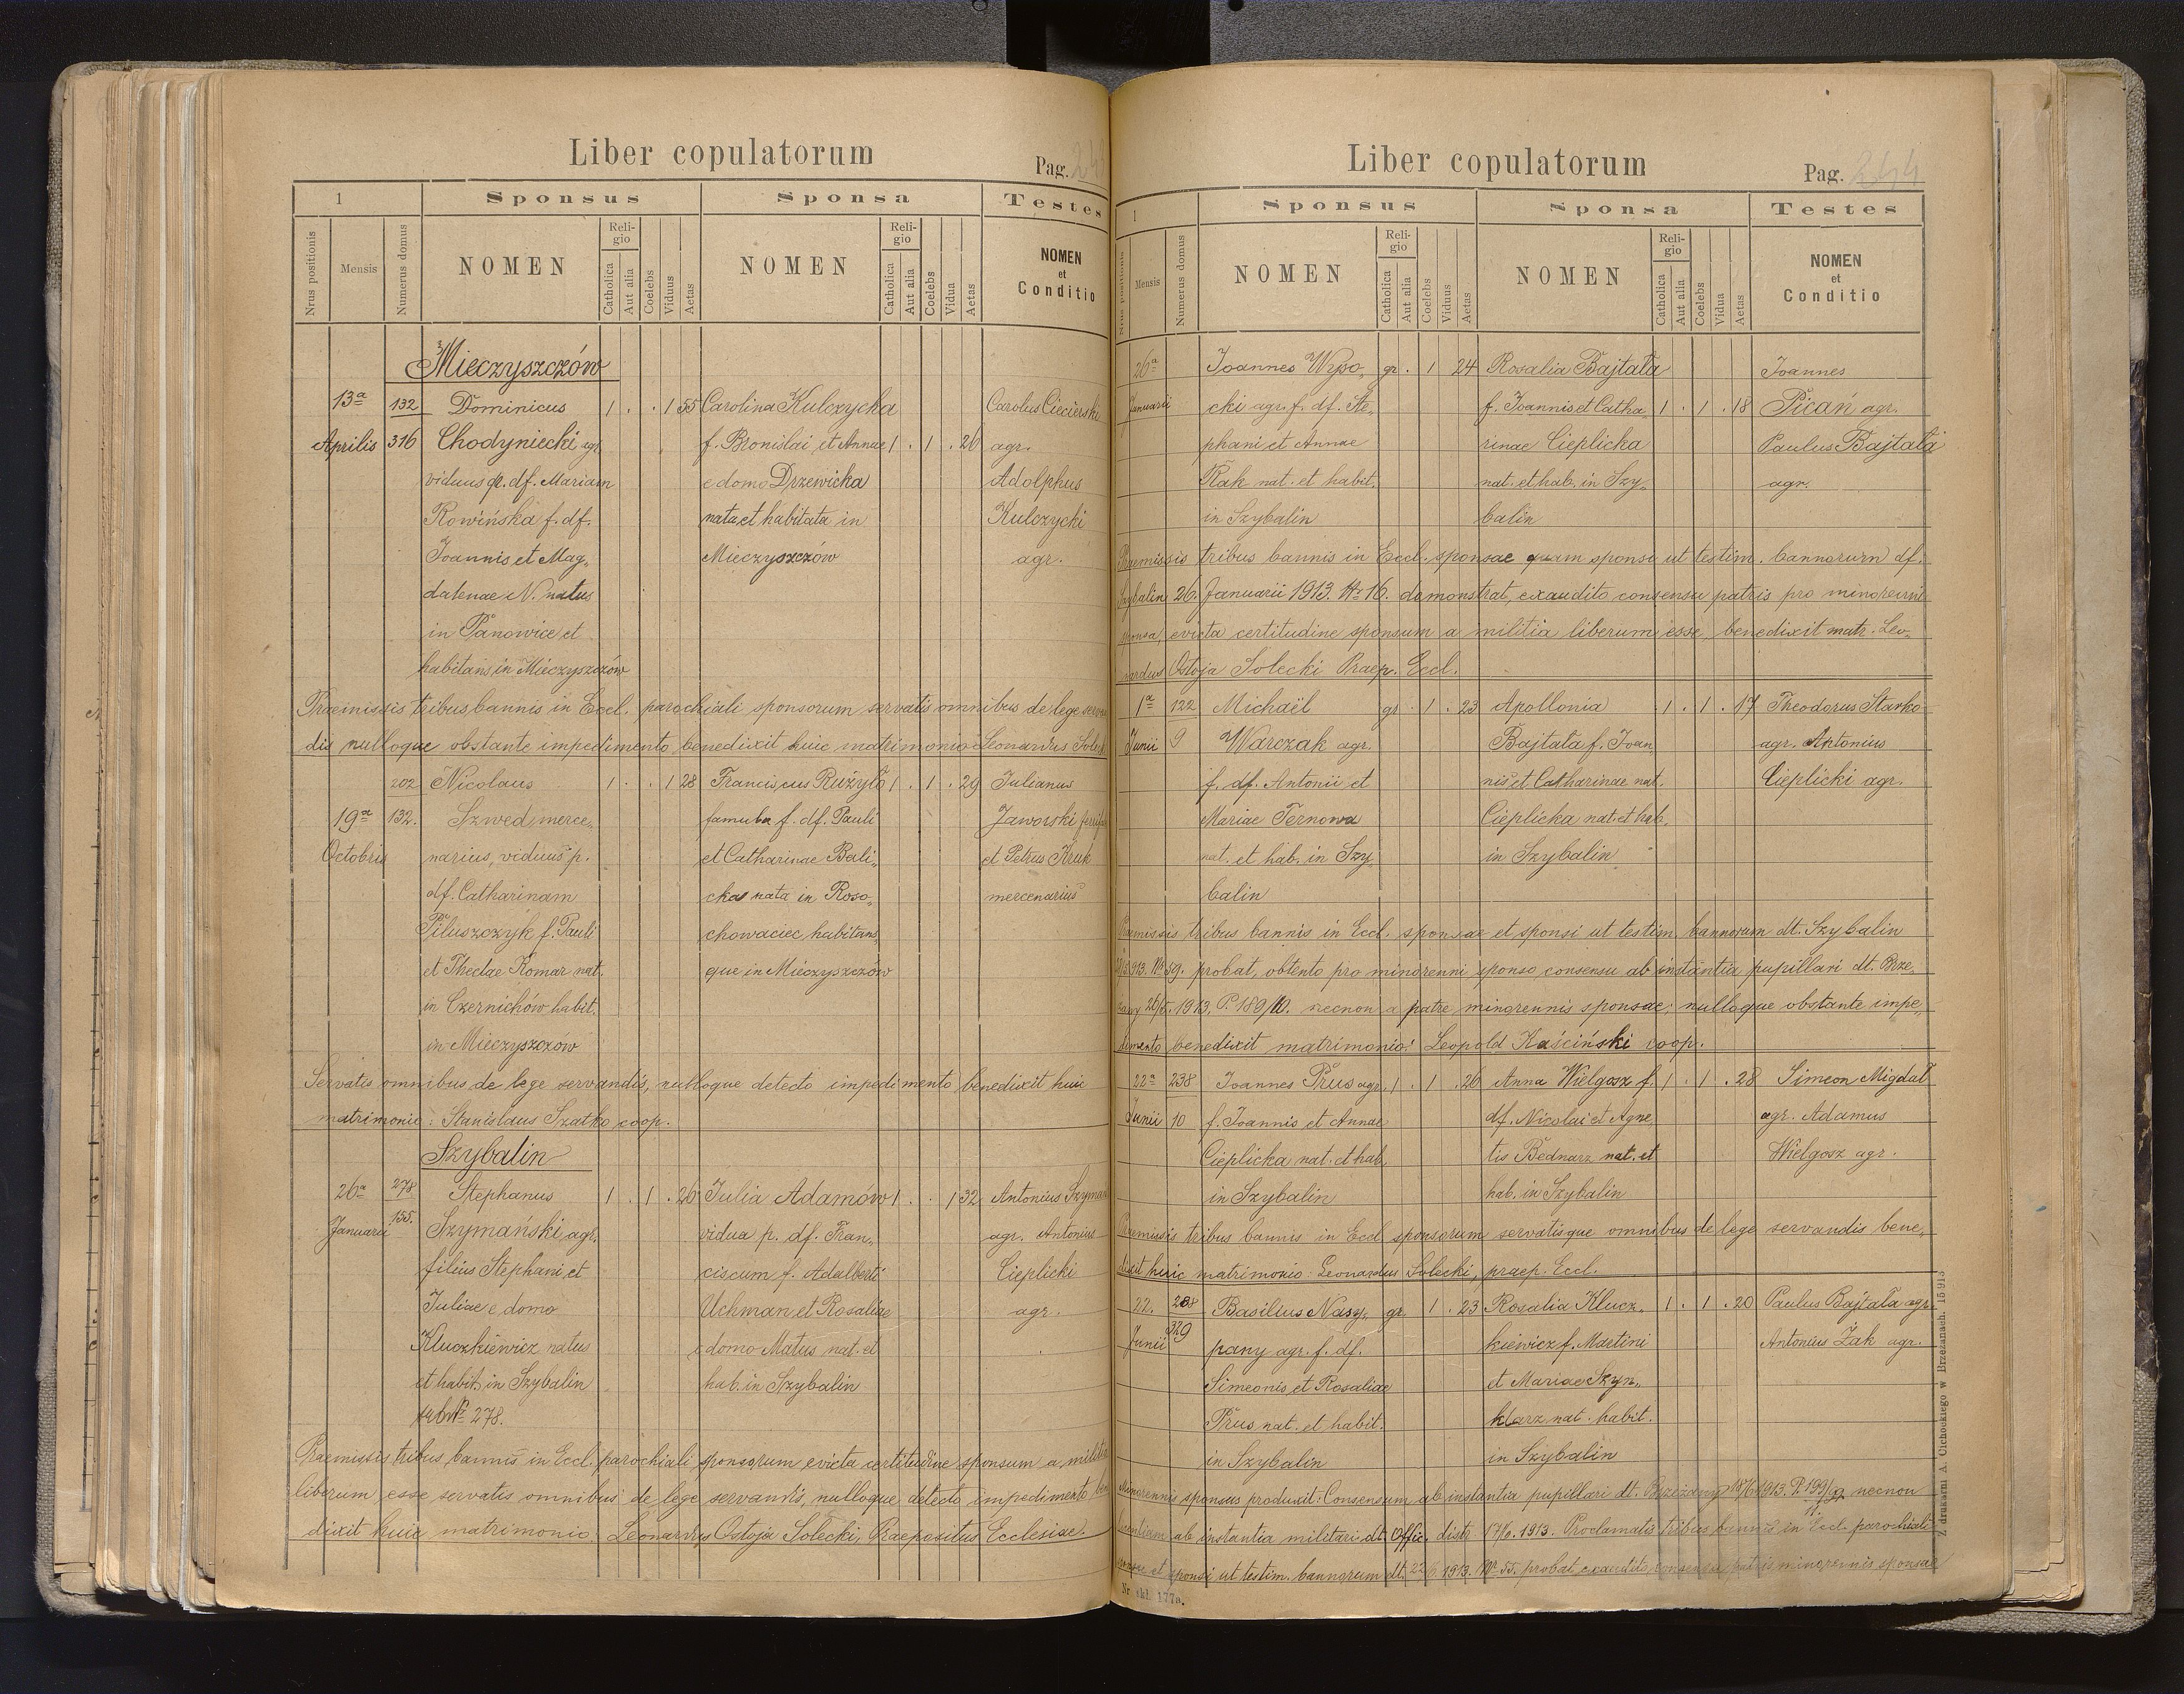 Liber copulatorum
Pag. 24
1
Sponsus
Sponsa
Testes
Nrus positionis
Mensis
Numerus domus
NOMEN
Religio
Catholica
Aut alia
Coelebs
Viduus
Aetas
NOMEN
Religio
Catholica
Aut alia
Coelebs
Vidua
Aetas
NOMEN
et
Conditio
Mieczyszczów
13a 132 Dominicus 1 . . 1 55 Carolina Kulczycka Carolus Ciecierski
Aprilis 316 Chodyniecki agr. f. Bronislai et Annae 1 . 1 . 26 agr.
viduus p. df. Mariam e domo Drzewicka Adolphus
Rowińska f. df. nata et habitata in Kulczycki
Joannis et Mag„ Mieczyszczów agr.
dalenae N. natus
in Panowice et
habitans in Mieczyszczów
Praemissis tribus bannis in Eccl. parochiali sponsorum servatis omnibus de lege servan
dis nulloque obstante impedimento benedixit huic matrimonio: Leonardus Solecki
202 Nicolaus 1 . . 1 28 Franciscus Rużyło 1 . 1 . 29 Julianus
19a 132. Szwed, merce„ famula f. df. Pauli Jaworski
Octobris narius, viduus p. et Catharinae Bali„ et Petrus Kruk
df. Catharinam cka nata in Roso„ mercenarius
Piluszczyk f. Pauli chowaciec habitans„
et Theclae Romar nat. que in Mieczyszczów
in Czernichów habit.
in Mieczyszczów
Servatis omnibus de lege servandis, nulloque detecto impedimento benedixit huic
matrimonio: Stanislaus Szatko coop.
Szybalin
26a 278 Stephanus 1 . 1 . 26 Julia Adamów 1 . . 1 32 Antonius Szymań
Januarii 155. Szymański agr. vidua p. df. Fran„ agr. Antonius
filius Stephani et ciscum f. Adalberti Cieplicki
Juliae e domo Uchman et Rosaliae agr.
Kluczkiewicz natus e domo Matus nat. et
et habit. in Szybalin hab. in Szybalin
sub Nr 278.
Praemissis tribus bannis in Eccl. parochiali sponsorum evicta certitudine sponsum a militia
liberum esse servatis omnibus de lege servandis, nulloque detecto impedimento bene
dixit huic matrimonio: Leonardus Ostoja Solecki, Praepositus Ecclesiae.
Liber copulatorum
Pag. 244
1
Sponsus
Sponsa
Testes
Nrus positionis
Mensis
Numerus domus
NOMEN
Religio
Catholica
Aut alia
Coelebs
Viduus
Aetas
NOMEN
Religio
Catholica
Aut alia
Coelebs
Vidua
Aetas
NOMEN
et
Conditio
26a Joannes Wyso„ gr. . 1 24 Rosalia Bajtała Joannes
Januarii cki agr. f. df. Ste„ f. Joannis et Catha„ 1 . 1 . 18 Picań agr.
phani et Annae rinae Cieplicka Paulus Bajtała
Rak nat. et habit. nat. et hab. in Szy„ agr.
in Szybalin balin
Praemissis tribus bannis in Eccl. sponsae quam sponsi ut testim. bannorum df.
Szybalin 26. Januarii 1913. Nr 16. demonstrat, exaudito consensu patris pro minorenni
sponsa, evicta certitudine sponsum a militia liberum esse, benedixit matr. Leo„
nardus Ostoja Solecki Praep. Eccl.
1a 122 Michaël gr . 1 . 23 Apollonia 1 . 1 . 17 Theodorus Starko
Junii 9 Warczak agr. Bajtała f. Joan agr. Antonius
f. df. Antonii et nis et Catharinae nat. Cieplicki agr.
Mariae Ternowa Cieplicka nat. et hab.
nat. et hab. in Szy in Szybalin
balin
Praemissis tribus bannis in Eccl. sponsae et sponsi ut testim. bannorum dt. Szybalin
1913. Nr 59. probat, obtento pro minorenni sponso consensu ab instantia pupillari dt. Brze„
żany 26/5. 1913. P. 189/10. necnon a patre minorennis sponsae; nulloque obstante impe„
dimento benedixit matrimonio: Leopold Kaściński coop.
22a 238 Joannes Prus agr. 1 . 1 . 26 Anna Wielgosz f. 1 . 1 . 28 Simeon Migdał
Junii 10 f. Joannis et Annae df. Nicolai et Agne agr. Adamus
Cieplicka nat. et hab. tis Bednarz nat. et Wielgosz agr.
in Szybalin hab. in Szybalin
Praemissis tribus bannis in Eccl. sponsorum servatisque omnibus de lege servandis bene„
dixit huic matrimonio: Leonardus Solecki, praep. Eccl.
22. 208 Basilius Nasy„ gr. 1 . 23 Rosalia Klucz„ 1 . 1 . 20 Paulus Bajtała agr.
Junii 329 pany agr. f. df. kiewicz f. Martini Antonius Żak agr.
Simeonis et Rosaliae et Mariae Szyn„
Prus nat. et habit. klarz nat. habit.
in Szybalin in Szybalin
Minorennis sponsus produxit: Consensum ab instantia pupillari dt. Brzeżany 1913. P. necnon
licentiam ab instantia militari dt. Offic. distr. 17/6. 1913. Proclamatis tribus bannis in Eccl. parochiali
sponsae et sponsi ut testim. bannorum dt. 22/6. 1913. Nr 55. probat, exaudito consensu patris minorennis sponsae
Nr. skl. 177a.
Z drukarni A. Cichockiego w Brzeżanach.